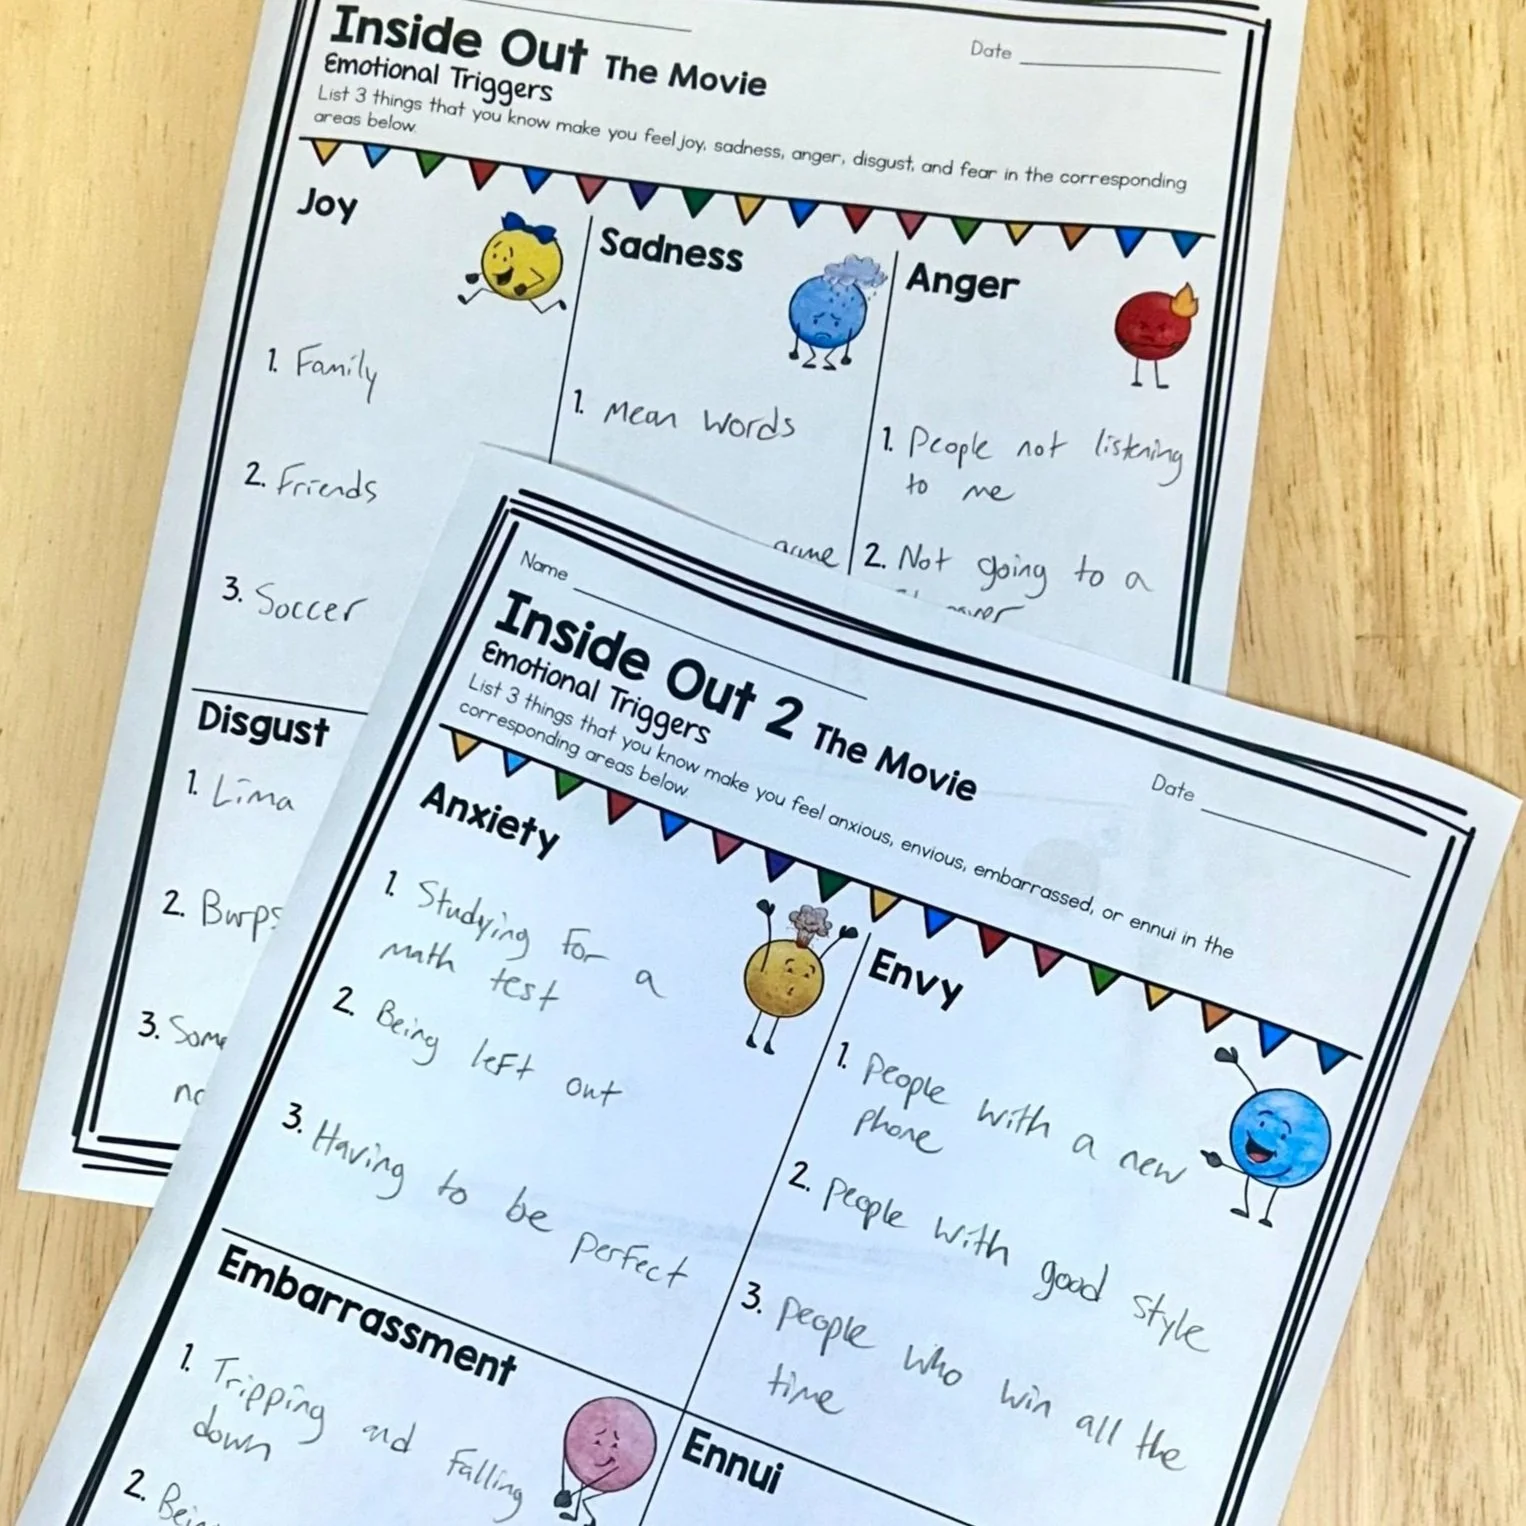 Inside Out The Movie
Date
Emotional Triggers
List 3 things that you know make you feel joy, sadness, anger, disgust, and fear in the corresponding
areas below.
Joy
1. Family
2. Friends
3. Soccer
Sadness
1. Mean words
game
Anger
1. People not listening
to me
2. Not going to a
Disgust
1. Lima
2. Burps
3.
Name
Date
Inside Out 2 The Movie
Emotional Triggers
List 3 things that you know make you feel anxious, envious, embarrassed, or ennui in the
corresponding areas below.
Anxiety
1. Studying for a
math test
2. Being left out
3. Having to be perfect
Envy
1. People with a new
phone
2. People with good style
3. People who win all the
time
Embarrassment
1. Tripping and falling
down
2.
Ennui